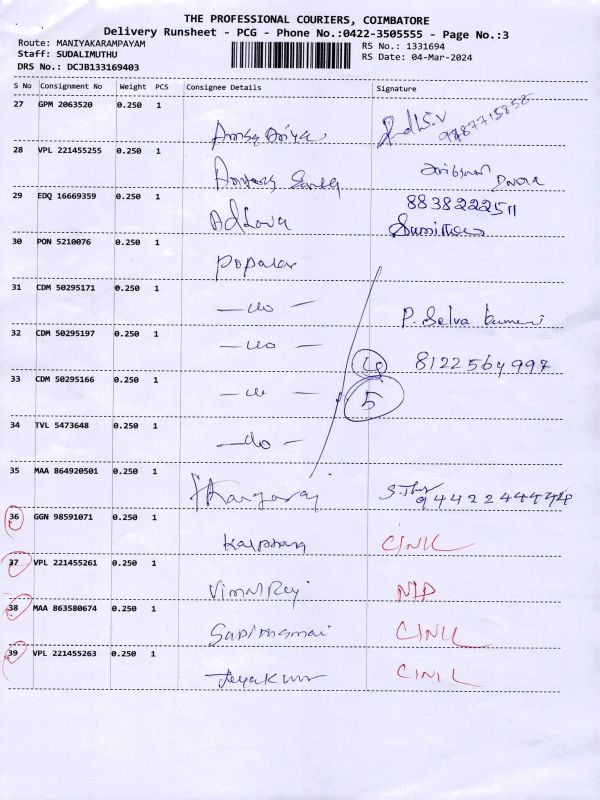 THE PROFESSIONAL COURIERS, COIMBATORE
Delivery Runsheet - PCG - Phone No.:0422-3505555 - Page No.:3
Route: MANIYAKARAMPAYAM
Staff: SUDALIMUTHU
DRS No.: DCJB133169403
RS No.: 1331694
RS Date: 04-Mar-2024
S No Consignment No Weight PCS Consignee Details Signature
27 GPM 2063520 0.250 1
28 VPL 221455255 0.250 1
29 EDQ 16669359 0.250 1 8838222511
30 PON 5210076 0.250 1 Popular
31 CDM 50295171 0.250 1 -do- P. Selva kumari
32 CDM 50295197 0.250 1 -do- 8122564997
33 CDM 50295166 0.250 1 5
34 TVL 5473648 0.250 1 -do-
35 MAA 864920501 0.250 1
36 GGN 98591071 0.250 1
37 VPL 221455261 0.250 1 Vimal Raj
38 MAA 863580674 0.250 1
39 VPL 221455263 0.250 1